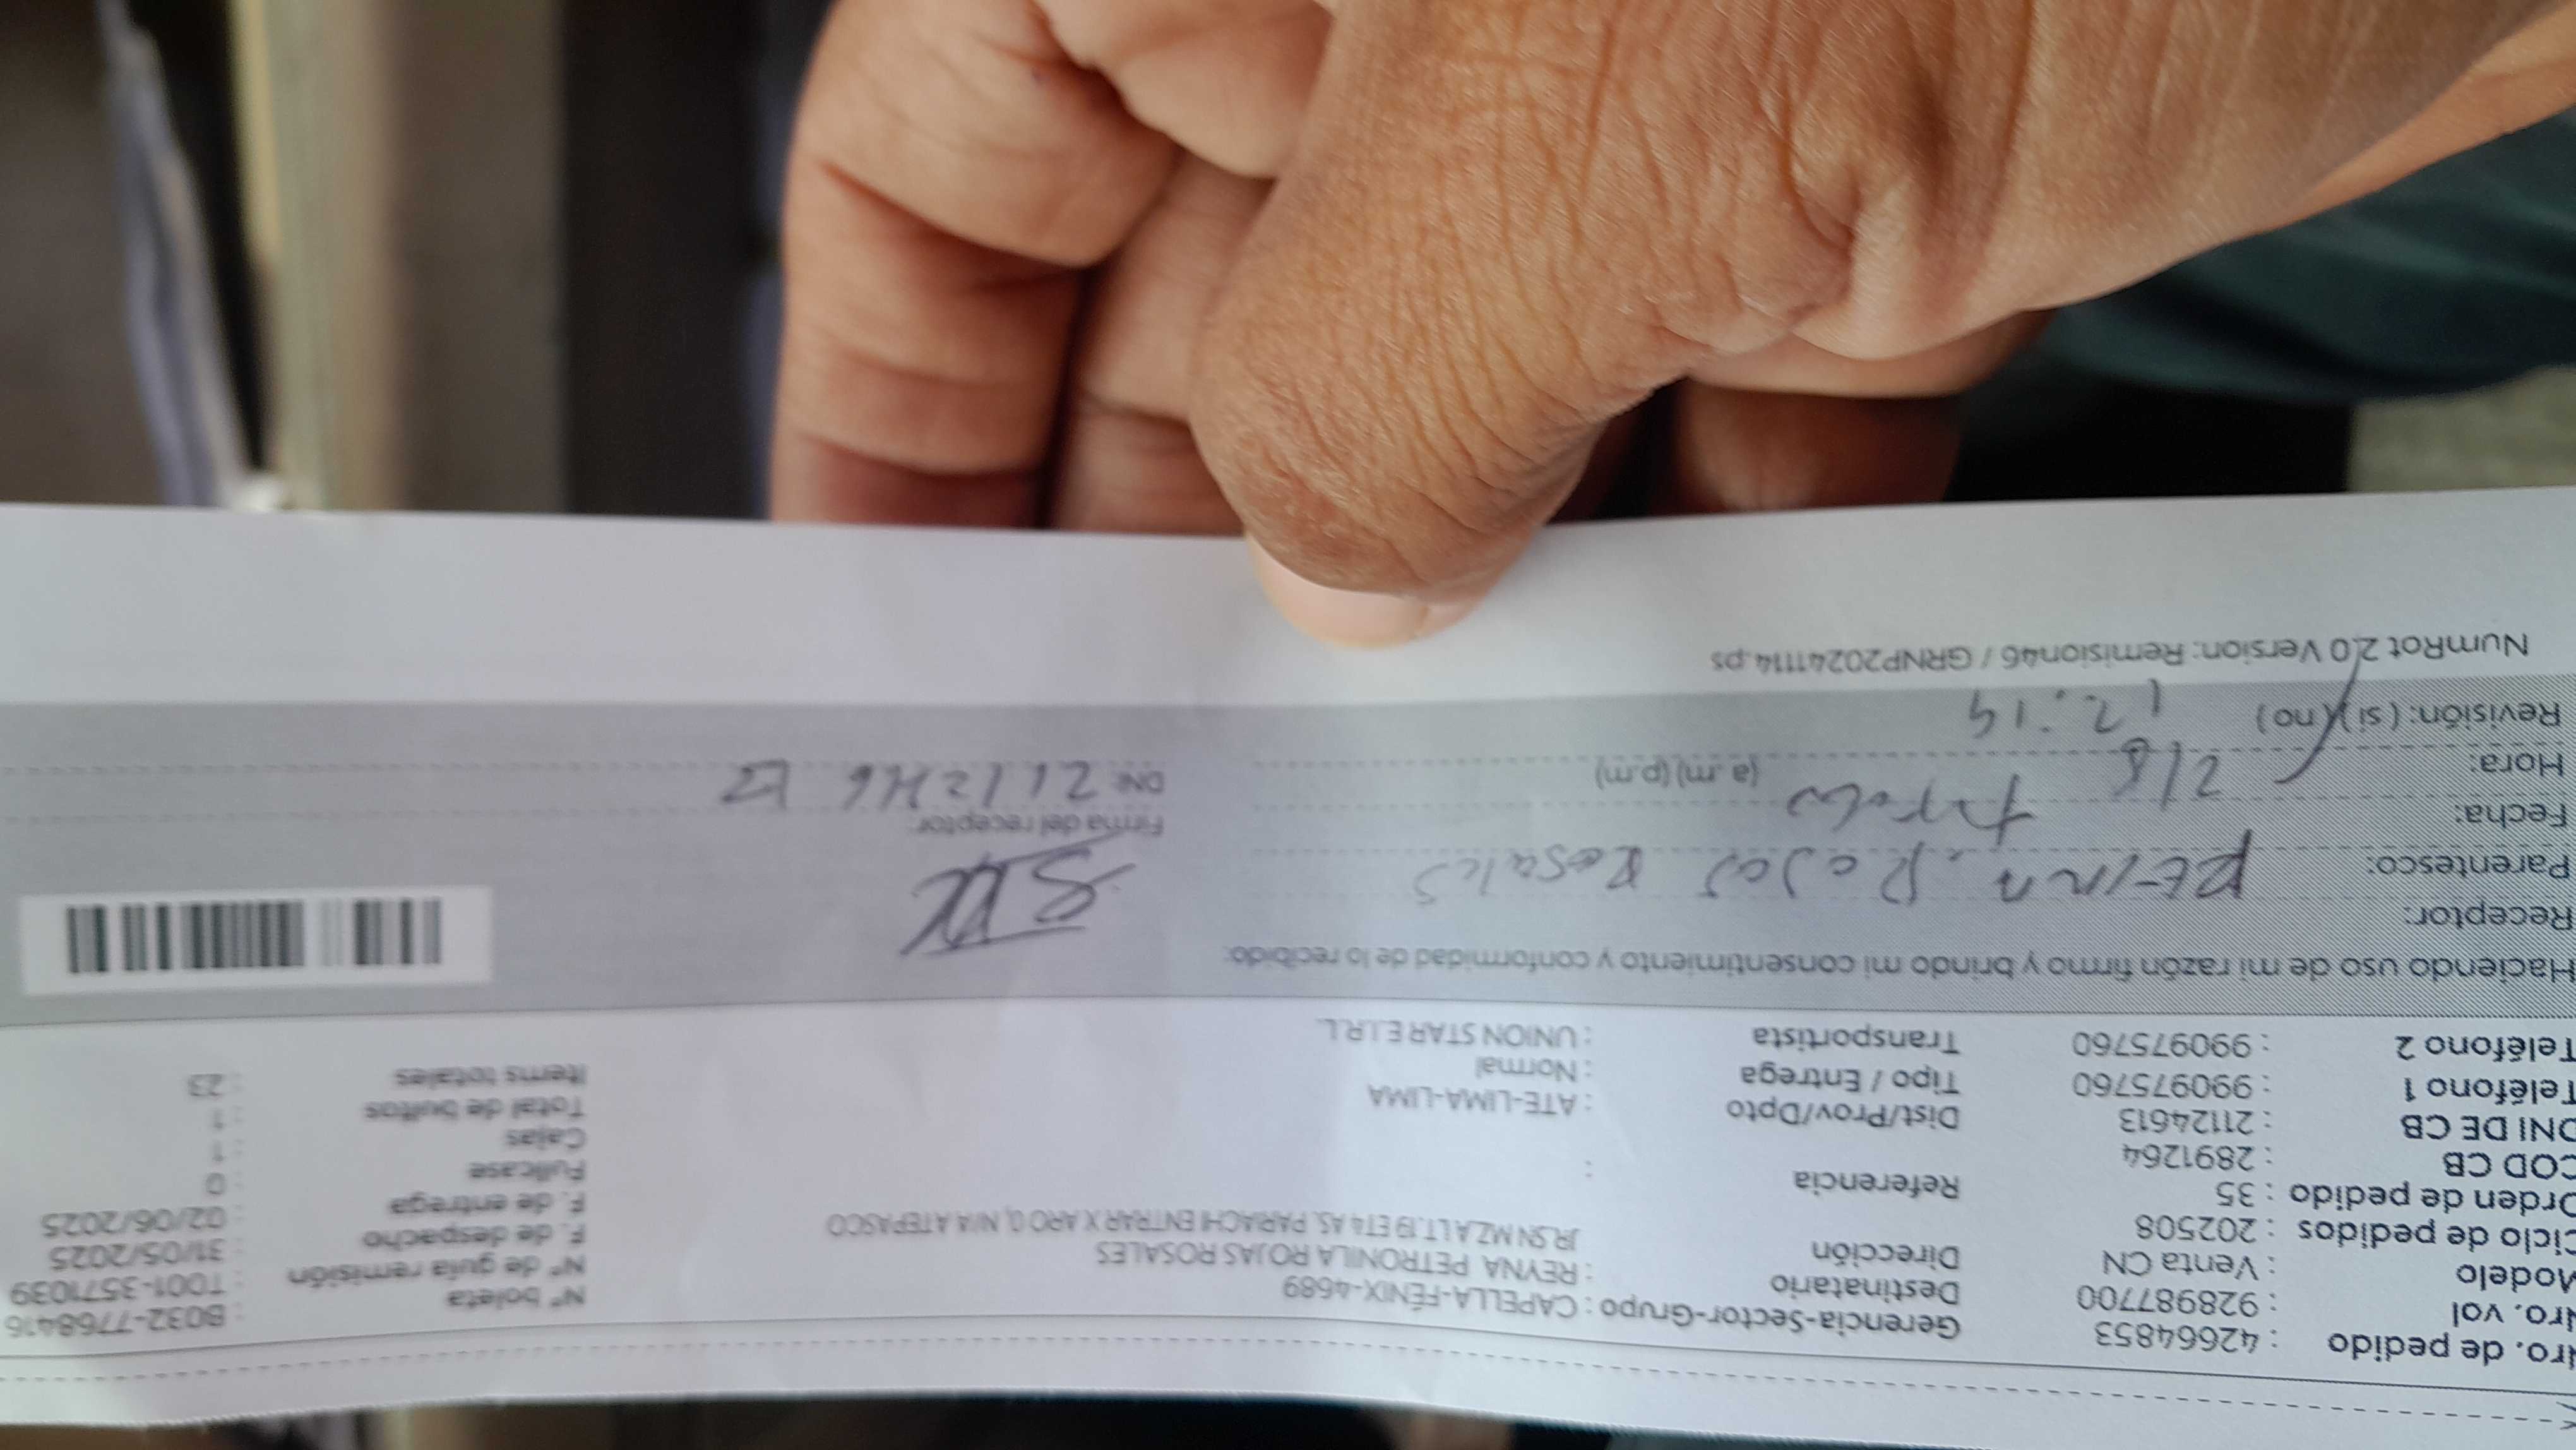 Nro. de pedido : 42664853
Nro. vol : 928987700
Modelo : Venta CN
Ciclo de pedidos : 202508
Orden de pedido : 35
COD CB : 2891264
DNI DE CB : 21124613
Teléfono 1 : 990975760
Teléfono 2 : 990975760
Gerencia-Sector-Grupo : CAPELLA-FÉNIX-4689
Destinatario : REYNA PETRONILA ROJAS ROSALES
Dirección JR.SN MZ.A LT.19 ET4 AS. PARACHI ENTRAR X ARO 0, N/A ATEPASCO
Referencia :
Dist/Prov/Dpto : ATE-LIMA-LIMA
Tipo / Entrega : Normal
Transportista : UNION STAR E.I.R.L.
N° boleta : B032-7768416
N° de guía remisión : T001-3571039
F. de despacho : 31/05/2025
F. de entrega : 02/06/2025
Fullcase : 0
Cajas : 1
Total de bultos : 1
Items totales : 23
Haciendo uso de mi razón firmo y brindo mi consentimiento y conformidad de lo recibido:
Receptor:
Rojas Rosales
Parentesco:
Fecha: 2/6
Hora: (a .m) (p.m)
12:14
Revisión: (si) (no)
Firma del receptor:
DNI:
NumRot 2.0 Version: Remision46 / GRNP20241114.ps